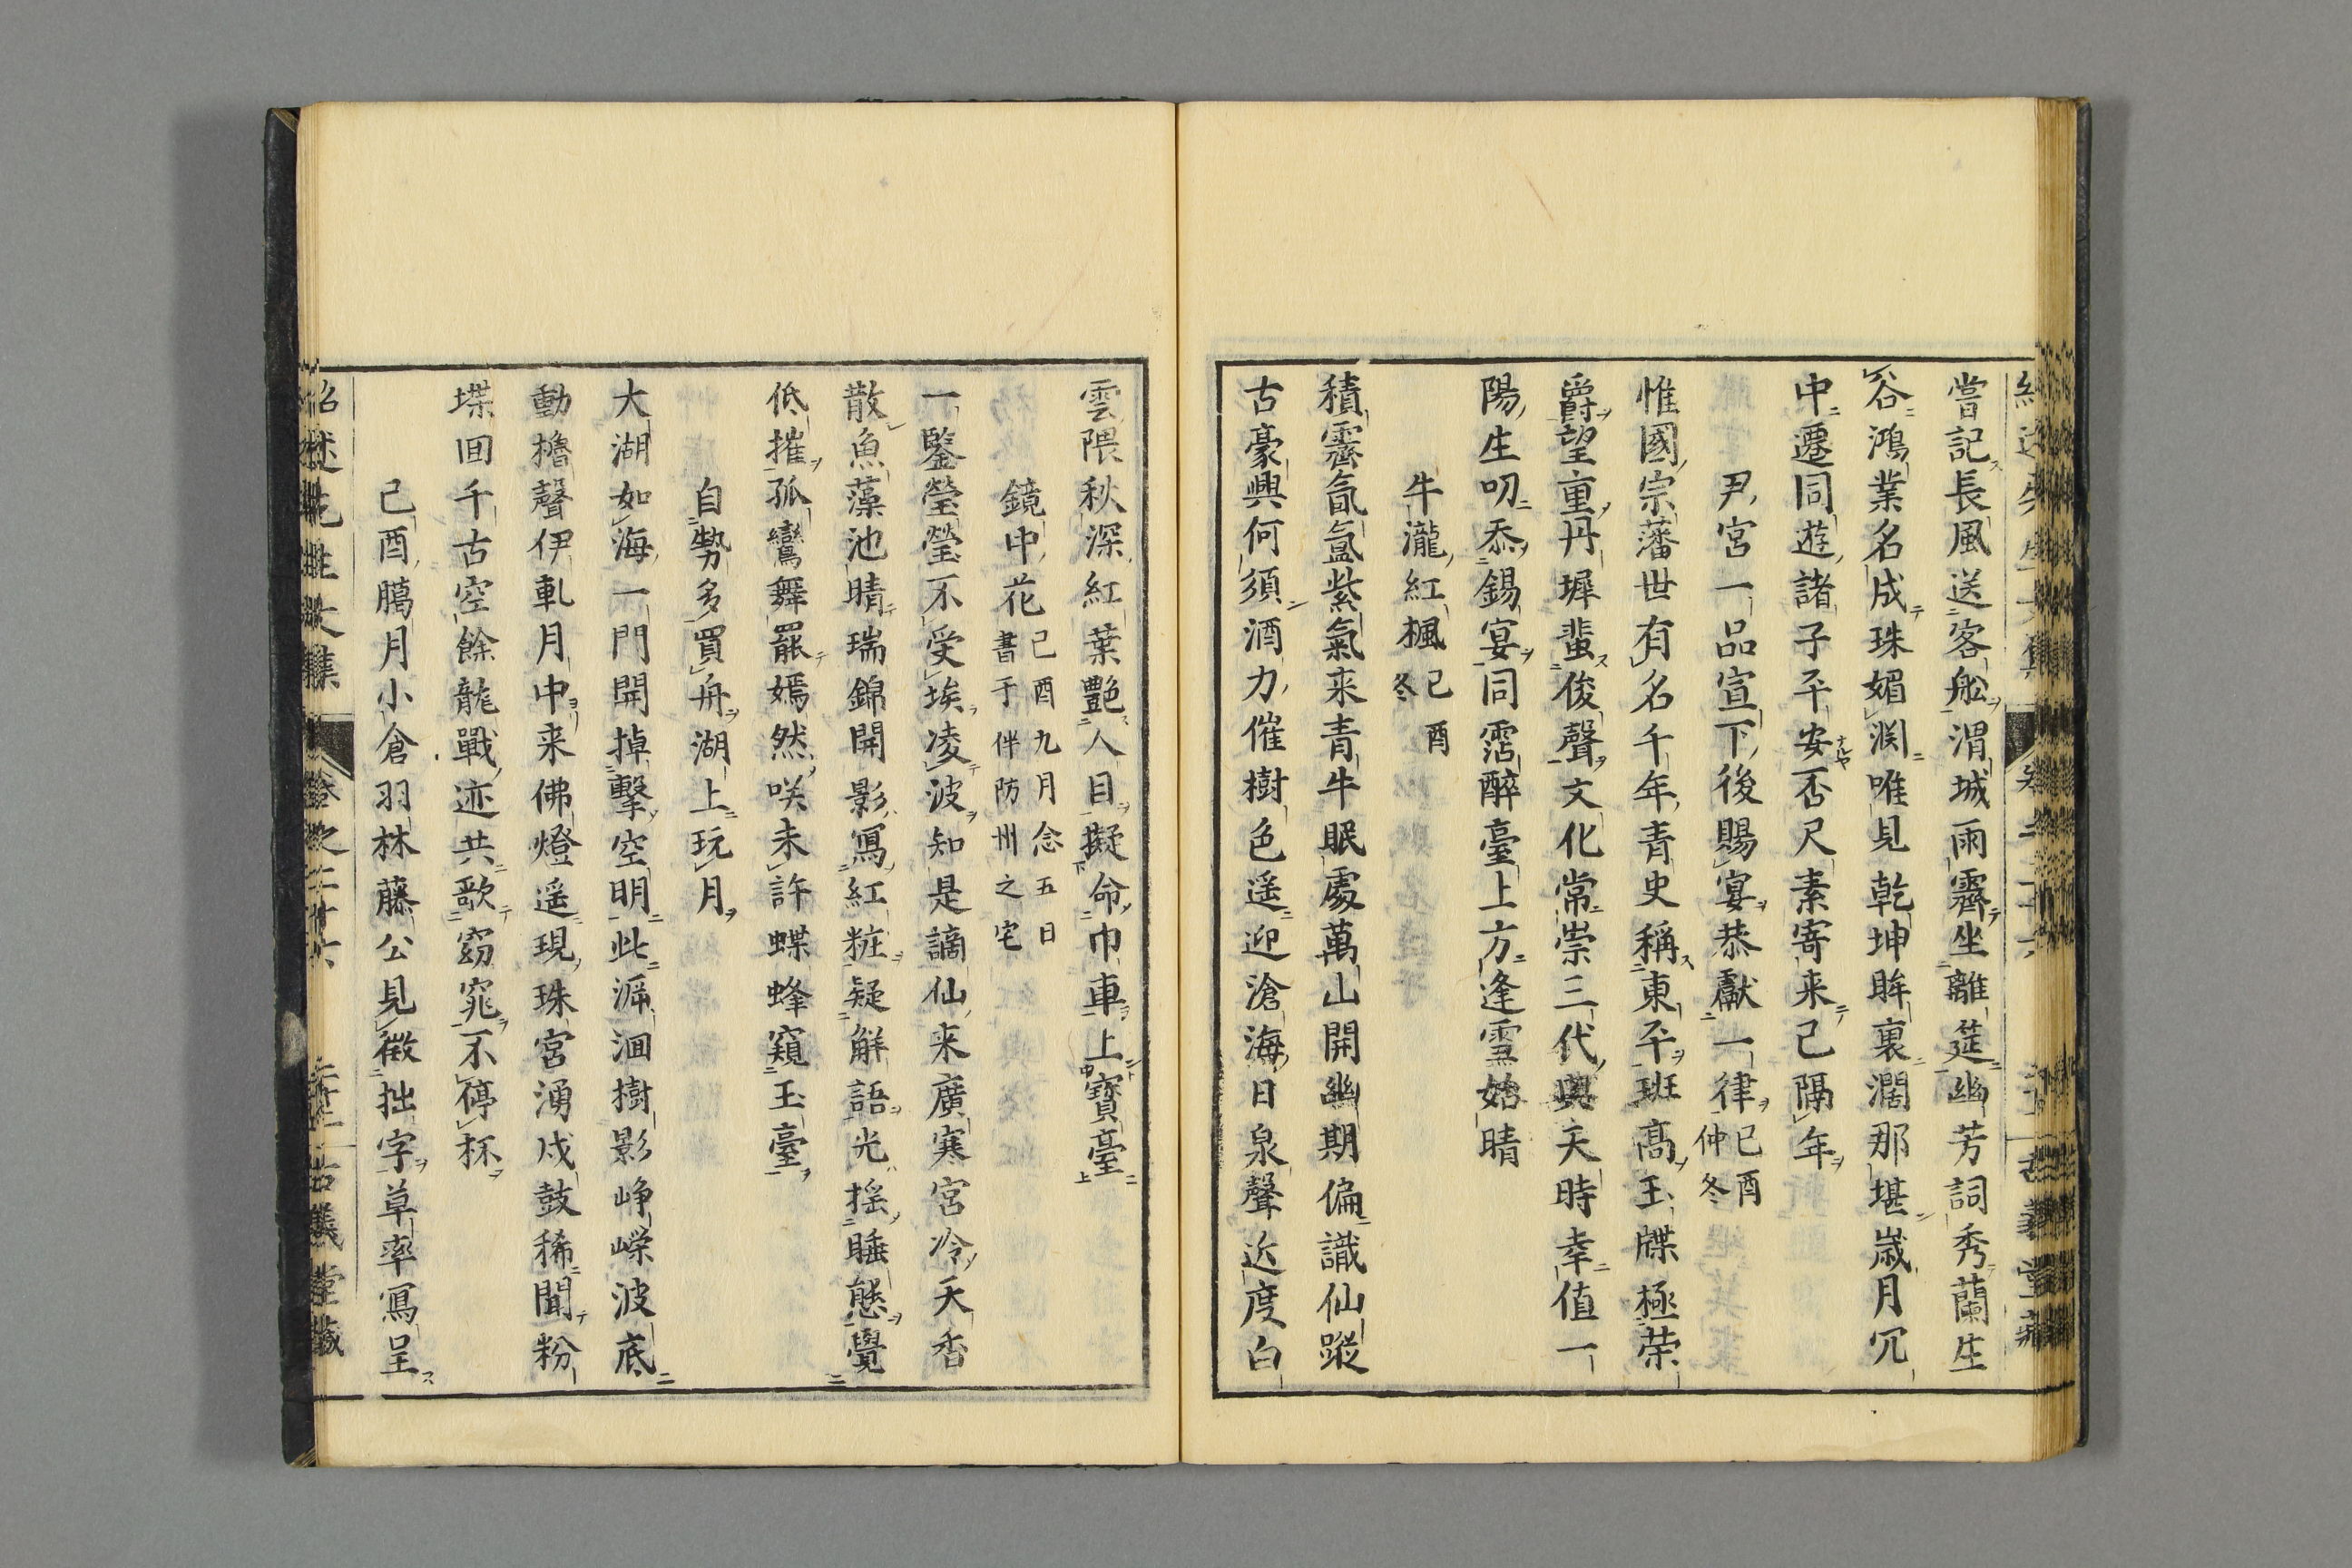 嘗記長風送客舩渭城雨霽坐離筵幽芳詞秀蘭生
谷鴻業名成珠媚渕唯見乾坤眸裏濶那堪歳月冗
中遷同遊諸子平安否尺素寄来已隔年
尹宮一品宣下後賜宴恭獻一律己酉仲冬
惟國宗藩世有名千年青史稱東平班高玉牒極荣
爵望重丹墀蜚俊聲文化常崇三代興天時幸值一
陽生叨忝錫宴同霑醉臺上方逢雪始晴
牛瀧紅楓己酉冬
積靄氤氲紫氣来青牛眠處萬山開幽期偏識仙蹤
古豪興何須酒力催樹色遥迎滄海日泉聲近度白
雲隈秋深紅葉艶人目擬命巾車上寶臺
鏡中花己酉九月念五日書于伴防州之宅
一鑒瑩瑩不受埃凌波知是謫仙来廣寒宮冷天香
散魚藻池晴瑞錦開影寫紅粧疑解語光揺睡態覺
低摧孤鸞舞罷嫣然咲未許蝶蜂窺玉臺
自勢多買舟湖上玩月
大湖如海一門開掉擊空明此泝洄樹影崢嶸波底
動櫓聲伊軋月中来佛燈遥現珠宮湧戍鼓稀聞粉
堞回千古空餘龍戰迹共歌窈窕不停杯
己酉臈月小倉羽林藤公見徵拙字草率寫呈
紹述先生文集 卷之二十六 古義堂藏